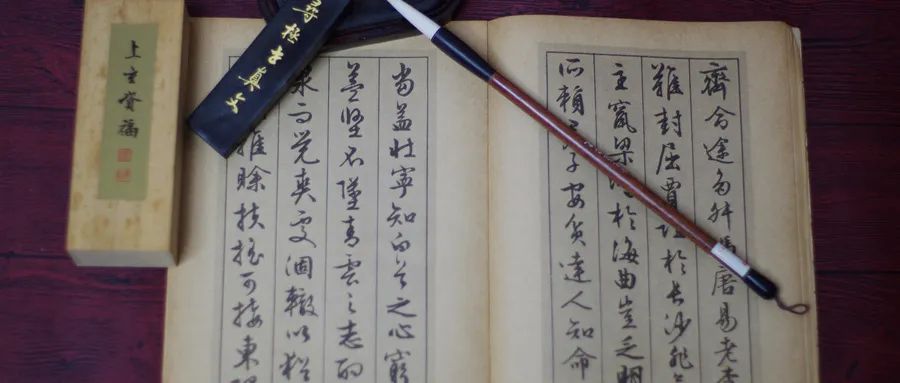 齊命途多舛馮唐易老李
難封屈賈誼於長沙非無
主竄梁鴻於海曲豈乏明
所賴君子安貧達人知命
當益壯寧知白首之心窮
益堅不墜青雲之志酌
泉而覺爽處涸轍以猶
雖賒扶搖可接東隅
尋 真文
上 福